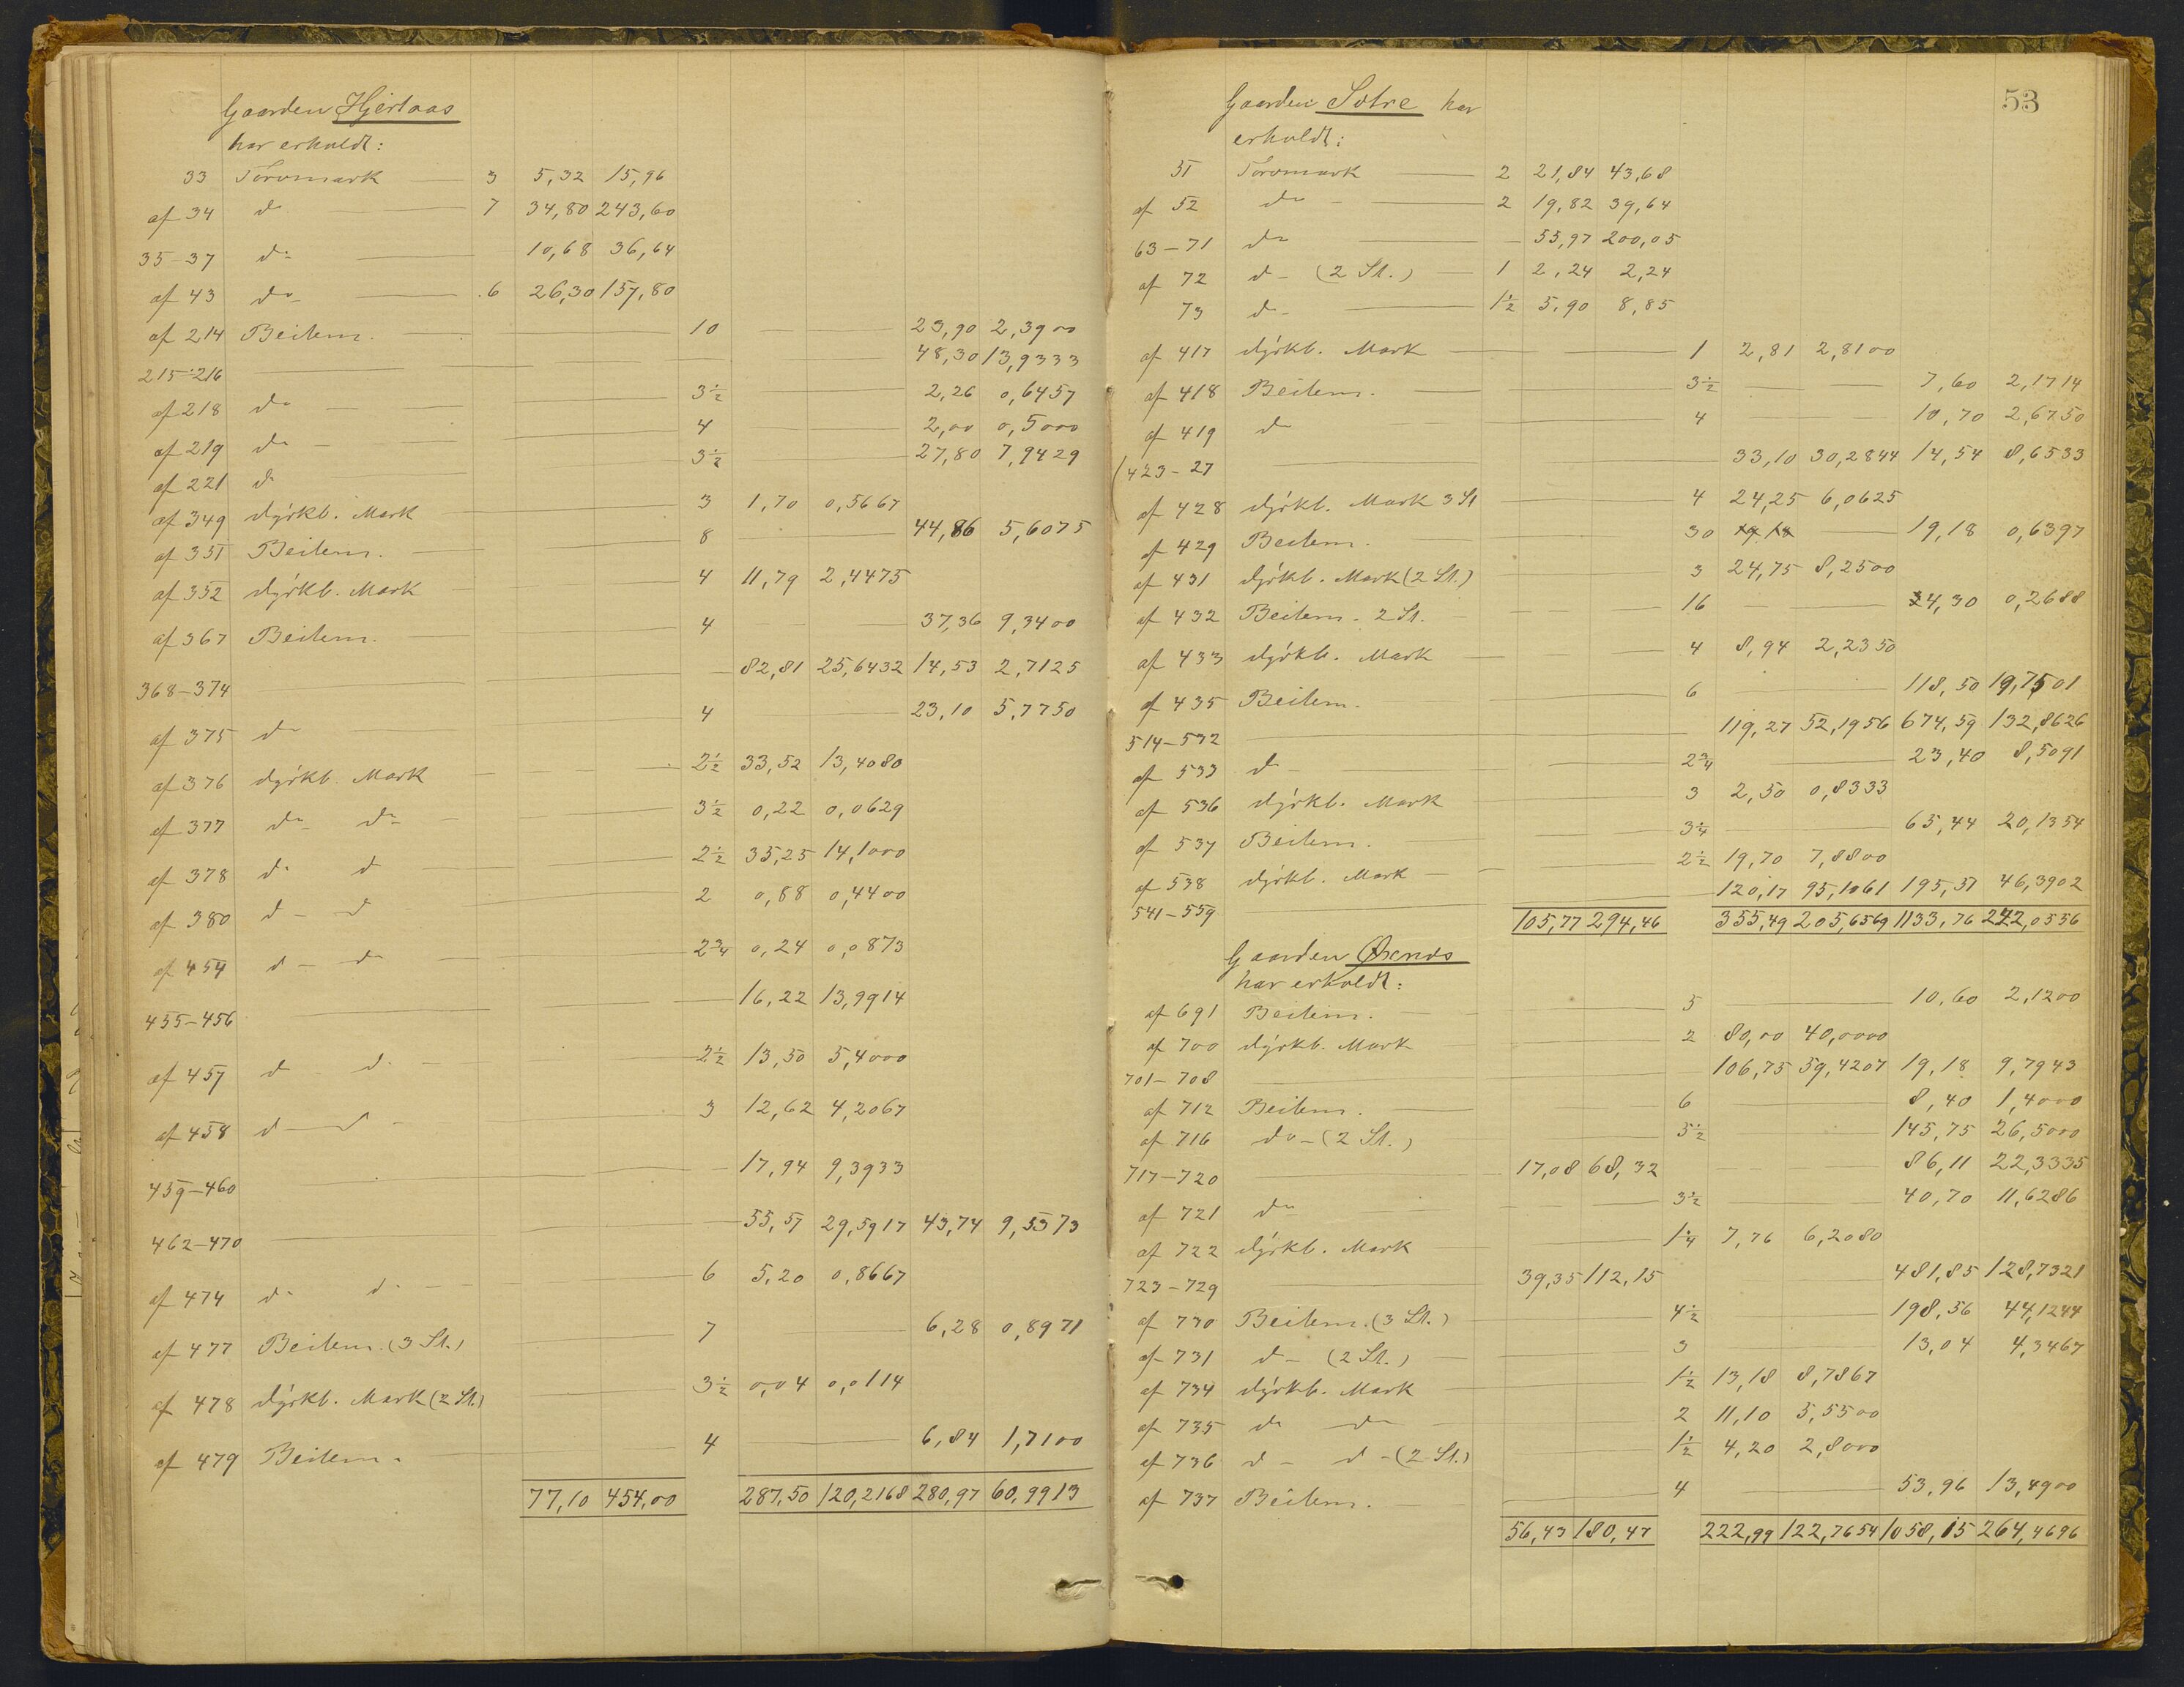 Gaarden Hjertaas
har erholdt:
33 Torvmark 3 5,32 15,96
af 34 do 7 34,80 243,60
35-37 do 10,68 36,64
af 43 do 6 26,30 157,80
af 214 Beitem. 10 23,90 2,3900
215-216 48,30 13,9333
af 218 do 3½ 2,26 0,6457
af 219 do 4 2,00 0,5000
af 221 do 3½ 27,80 7,9429
af 349 dyrkb. Mark 3 1,70 0,5667
af 351 Beitem. 8 44,86 5,6075
af 352 dyrkb. Mark 4 11,79 2,4475
af 367 Beitem. 4 37,36 9,3400
368-374 82,81 25,6432 14,53 2,7125
af 375 do 4 23,10 5,7750
af 376 dyrkb. Mark 2½ 33,52 13,4080
af 377 do do 3½ 0,22 0,0629
af 378 do do 2½ 35,25 14,1000
af 380 do do 2 0,88 0,4400
af 454 do do 2¾ 0,24 0,0873
455-456 16,22 13,9914
af 457 do do 2½ 13,50 5,4000
af 458 do do 3 12,62 4,2067
459-460 17,94 9,3933
462-470 55,57 29,5917 43,74 9,5373
af 474 do do 6 5,20 0,8667
af 477 Beitem. (3 St.) 7 6,28 0,8971
af 478 dyrkb. Mark (2 St.) 3½ 0,04 0,0114
af 479 Beitem. 4 6,84 1,7100
77,10 454,00 287,50 120,2168 280,97 60,9913
53
Gaarden Sotre har
erholdt:
51 Torvmark 2 21,84 43,68
af 52 do 2 19,82 39,64
63-71 do 55,97 200,05
af 72 do (2 St.) 1 2,24 2,24
73 do 1½ 5,90 8,85
af 417 dyrkb. Mark 1 2,81 2,8100
af 418 Beitem. 3½ 7,60 2,1714
af 419 do 4 10,70 2,6750
423-27 33,10 30,2844 14,54 8,6533
af 428 dyrkb. Mark 3 St 4 24,25 6,0625
af 429 Beitem. 30 19,18 0,6397
af 431 dyrkb. Mark (2 St.) 3 24,75 8,2500
af 432 Beitem. 2 St. 16 4,30 0,2688
af 433 dyrkb. Mark 4 8,94 2,2350
af 435 Beitem. 6 118,50 19,7501
514-532 119,27 52,1956 674,59 132,8626
af 533 do 2¾ 23,40 8,5091
af 536 dyrkb. Mark 3 2,50 0,8333
af 537 Beitem. 3¼ 65,44 20,1354
af 538 dyrkb. Mark 2½ 19,70 7,8800
541-559 120,17 95,1061 195,51 46,3902
105,77 294,46 355,49 205,6569 1133,76 242,0556
Gaarden Øxnes
har erholdt:
af 691 Beitem. 5 10,60 2,1200
af 700 dyrkb. Mark 2 80,00 40,0000
701-708 106,75 59,4207 19,18 9,7943
af 712 Beitem. 6 8,40 1,4000
af 716 do (2 St.) 5½ 145,75 26,5000
717-720 17,08 68,32 86,11 22,3335
af 721 do 3½ 40,70 11,6286
af 722 dyrkb. Mark 1¼ 7,76 6,2080
723-729 39,35 112,15 481,85 128,7321
af 730 Beitem. (3 St.) 4½ 198,56 44,1244
af 731 do (2 St.) 3 13,04 4,3467
af 734 dyrkb. Mark 1½ 13,18 8,7867
af 735 do do 2 11,10 5,5500
af 736 do do (2 St.) 1½ 4,20 2,8000
af 737 Beitem. 4 53,96 13,4900
56,43 180,47 222,99 122,7654 1058,15 264,4696